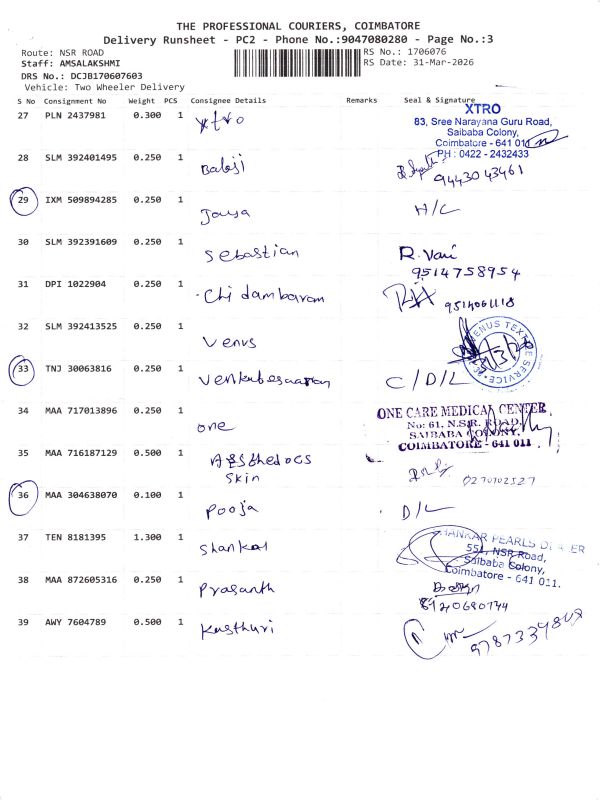 THE PROFESSIONAL COURIERS, COIMBATORE
Delivery Runsheet - PC2 - Phone No.:9047080280 - Page No.:3
Route: NSR ROAD RS No.: 1706076
Staff: AMSALAKSHMI RS Date: 31-Mar-2026
DRS No.: DCJB170607603
Vehicle: Two Wheeler Delivery
S No Consignment No Weight PCS Consignee Details Remarks Seal & Signature
27 PLN 2437981 0.300 1 xtro XTRO
83, Sree Narayana Guru Road,
Saibaba Colony,
Coimbatore - 641 011
PH : 0422 - 2432433
28 SLM 392401495 0.250 1 Balaji 9443043461
29 IXM 509894285 0.250 1 Jaya H/C
30 SLM 392391609 0.250 1 Sebastian R. Vani
9514758954
31 DPI 1022904 0.250 1 Chidambaram 9514061118
32 SLM 392413525 0.250 1 Venus VENUS TEXTILE SERVICE
33 TNJ 30063816 0.250 1 Venkatesaaran C/D/L
34 MAA 717013896 0.250 1 one ONE CARE MEDICAL CENTER
No: 61, N.S.R. ROAD,
SAIBABA COLONY,
COIMBATORE - 641 011
35 MAA 716187129 0.500 1
skin
36 MAA 304638070 0.100 1 Pooja D/L
37 TEN 8181395 1.300 1 Shankar SHANKAR PEARLS
551, NSR Road,
Saibaba Colony,
Coimbatore - 641 011.
38 MAA 872605316 0.250 1 Prasanth
39 AWY 7604789 0.500 1 Kasthuri